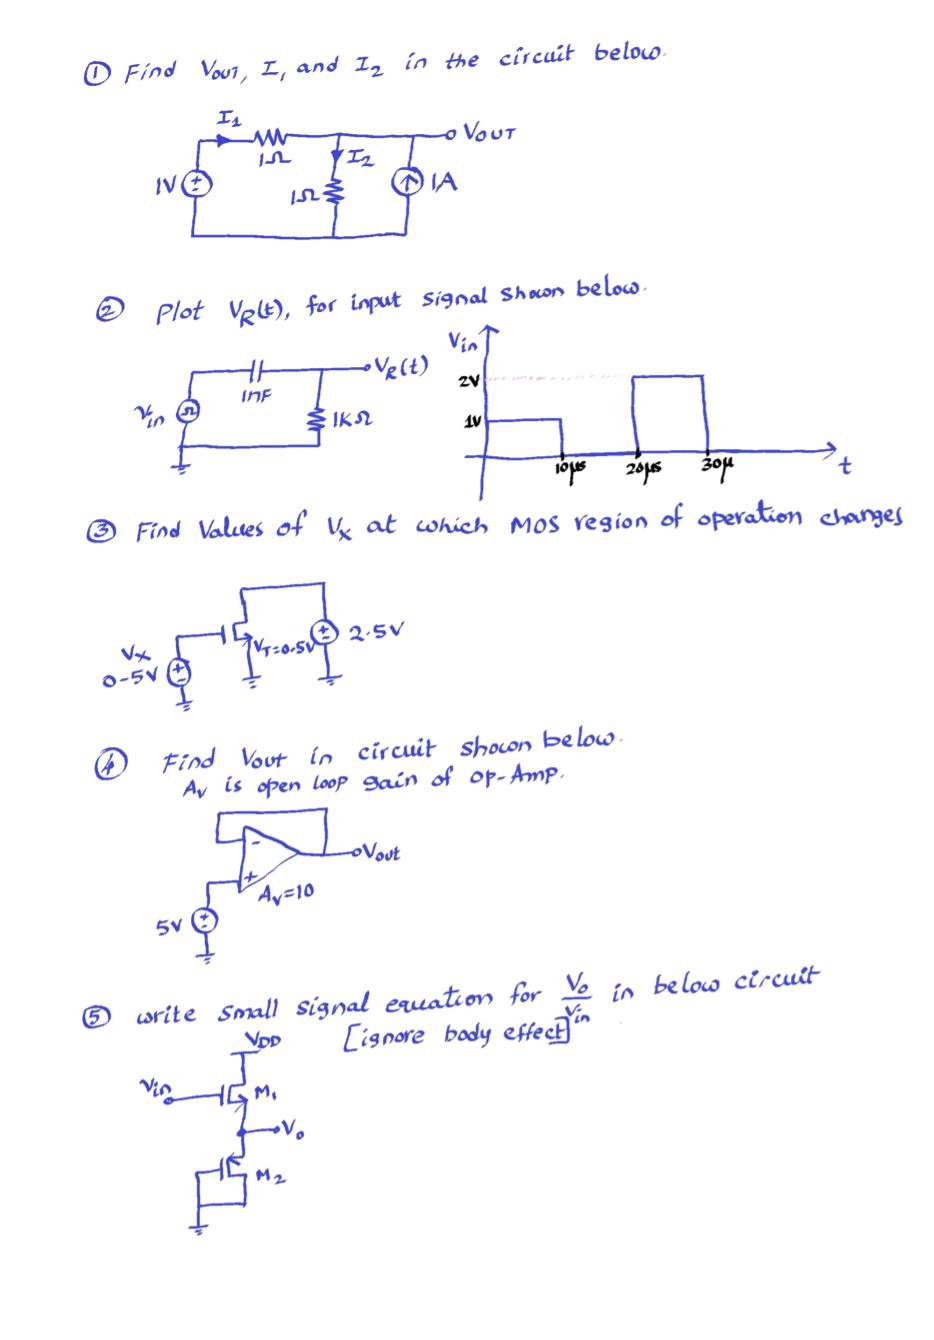 ① Find VOUT, I, and I2 in the circuit below.
I1
VOUT
1Ω
I2
1V
1Ω
1A
② Plot VR(t), for input signal shown below.
Vin
VR(t)
2V
1nF
Vin
1KΩ
1V
10μs
20μs
30μ
t
③ Find Values of Vx at which MOS region of operation changes
Vx
0-5V
VT=0.5V
2.5V
④ Find Vout in circuit shown below.
Av is open loop gain of op-Amp.
-
Vout
+
Av=10
5V
⑤ write small signal equation for Vo/Vin in below circuit
[ignore body effect]
VDD
Vin
M1
Vo
M2